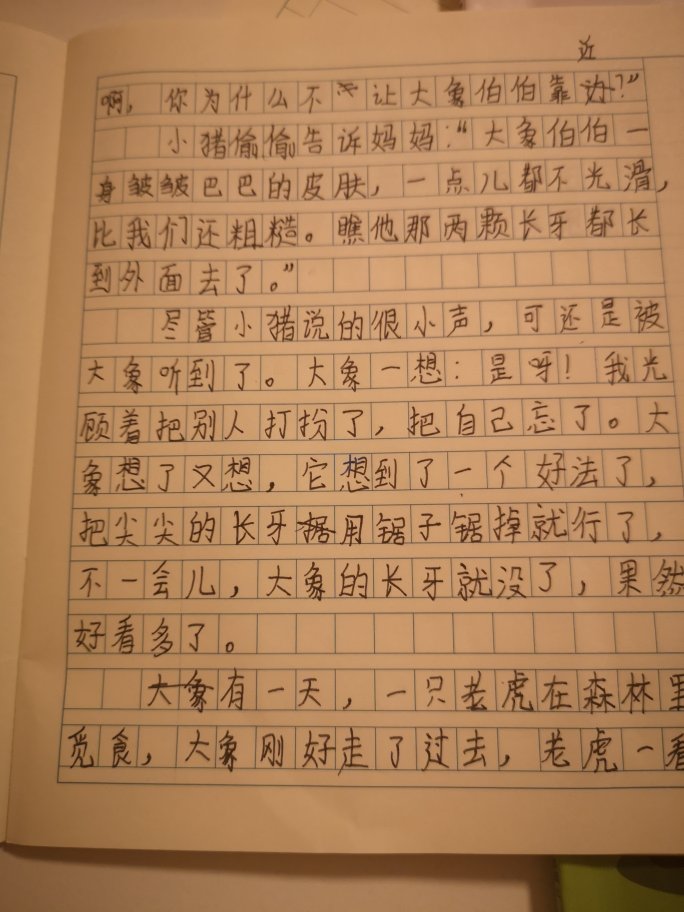 近
啊，你为什么不让大象伯伯靠边？”
小猪偷偷告诉妈妈：“大象伯伯一
身皱皱巴巴的皮肤，一点儿都不光滑，
比我们还粗糙。瞧他那两颗长牙都长
到外面去了。”
尽管小猪说的很小声，可还是被
大象听到了。大象一想：是呀！我光
顾着把别人打扮了，把自己忘了。大
象想了又想，它想到了一个好法了，
把尖尖的长牙用锯子锯掉就行了，
不一会儿，大象的长牙就没了，果然
好看多了。
大象有一天，一只老虎在森林里
觅食，大象刚好走了过去，老虎一看